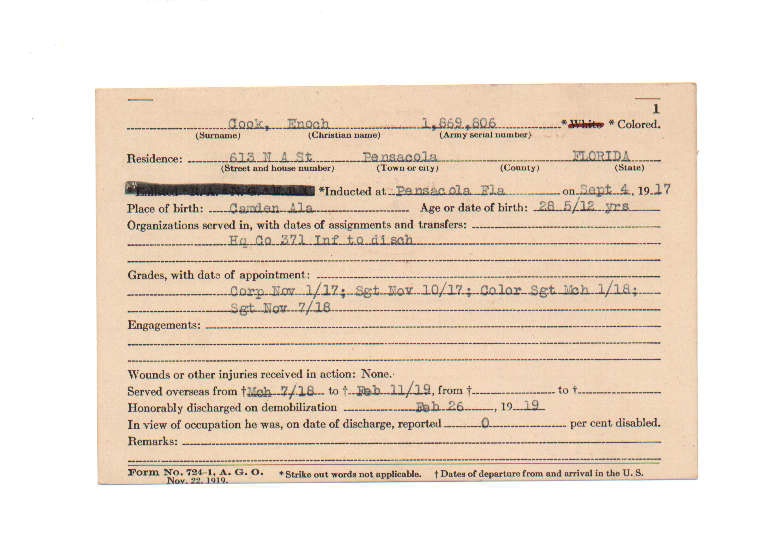 1
Cook, Enoch 1,869,806 * White * Colored.
(Surname) (Christian name) (Army serial number)
Residence: 613 N A St Pensacola FLORIDA
(Street and house number) (Town or city) (County) (State)
*Inducted at Pensacola Fla on Sept 4, 1917
Place of birth: Camden Ala Age or date of birth: 28 5/12 yrs
Organizations served in, with dates of assignments and transfers:
Hq Co 371 Inf to disch
Grades, with date of appointment:
Corp Nov 1/17; Sgt Nov 10/17; Color Sgt Mch 1/18;
Sgt Nov 7/18
Engagements:
Wounds or other injuries received in action: None.
Served overseas from † Mch 7/18 to † Feb 11/19, from † to †
Honorably discharged on demobilization Feb 26, 1919
In view of occupation he was, on date of discharge, reported 0 per cent disabled.
Remarks:
Form No. 724-1, A. G. O. * Strike out words not applicable. † Dates of departure from and arrival in the U. S.
Nov. 22, 1919.